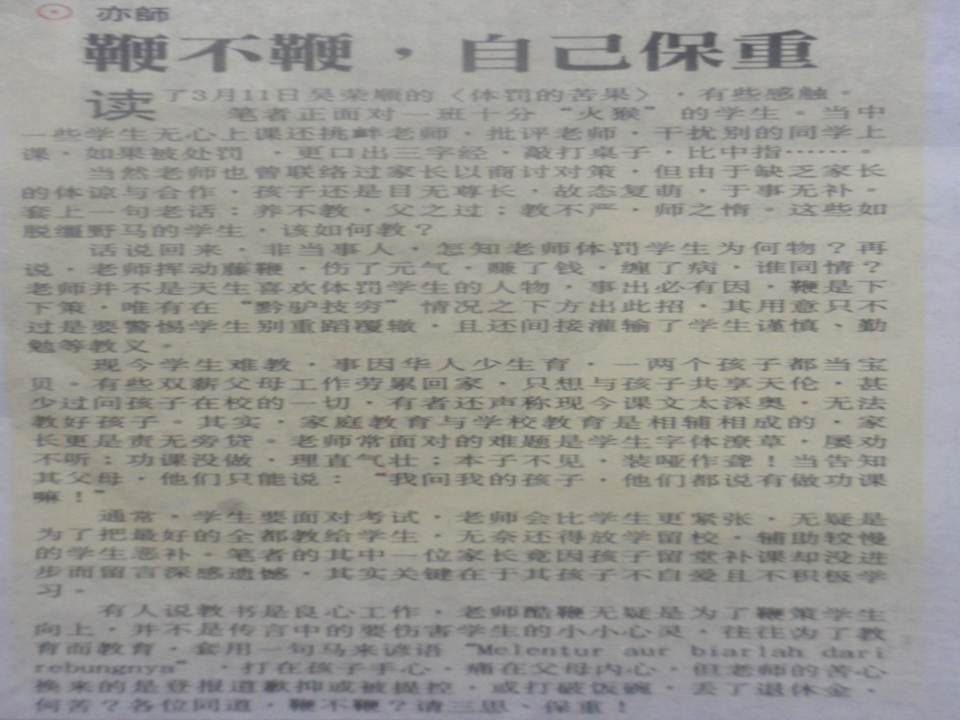 亦師
鞭不鞭，自己保重
读了3月11日吴荣顺的〈体罚的苦果〉，有些感触。
笔者正面对一班十分“火猴”的学生。当中
一些学生无心上课还挑衅老师，批评老师，干扰别的同学上
课，如果被处罚，更口出三字经，敲打桌子，比中指……。
当然老师也曾联络过家长以商讨对策，但由于缺乏家长
的体谅与合作，孩子还是目无尊长，故态复萌，于事无补。
套上一句老话：养不教，父之过；教不严，师之惰。这些如
脱缰野马的学生，该如何教？
话说回来，非当事人，怎知老师体罚学生为何物？再
说，老师挥动藤鞭，伤了元气，赚了钱，缠了病，谁同情？
老师并不是天生喜欢体罚学生的人物，事出必有因，鞭是下
下策，唯有在“黔驴技穷”情况之下方出此招，其用意只不
过是要警惕学生别重蹈覆辙，且还间接灌输了学生谨慎、勤
勉等教义。
现今学生难教，事因华人少生育，一两个孩子都当宝
贝。有些双薪父母工作劳累回家，只想与孩子共享天伦，甚
少过问孩子在校的一切，有者还声称现今课文太深奥，无法
教好孩子。其实，家庭教育与学校教育是相辅相成的，家
长更是责无旁贷。老师常面对的难题是学生字体潦草，屡劝
不听；功课没做，理直气壮；本子不见，装哑作聋！当告知
其父母，他们只能说：“我问我的孩子，他们都说有做功课
嘛！”
通常，学生要面对考试，老师会比学生更紧张，无疑是
为了把最好的全都教给学生，无奈还得放学留校，辅助较慢
的学生恶补。笔者的其中一位家长竟因孩子留堂补课却没进
步而留言深感遗憾，其实关键在于其孩子不自爱且不积极学
习。
有人说教书是良心工作，老师酷鞭无疑是为了鞭策学生
向上，并不是传言中的要伤害学生的小小心灵，往往为了教
育而教育，套用一句马来谚语“Melentur aur biarlah dari
rebungnya”，打在孩子手心，痛在父母内心，但老师的苦心
换来的是登报道歉抑或被提控，或打破饭碗，丢了退休金，
何苦？各位同道，鞭不鞭？请三思、保重！